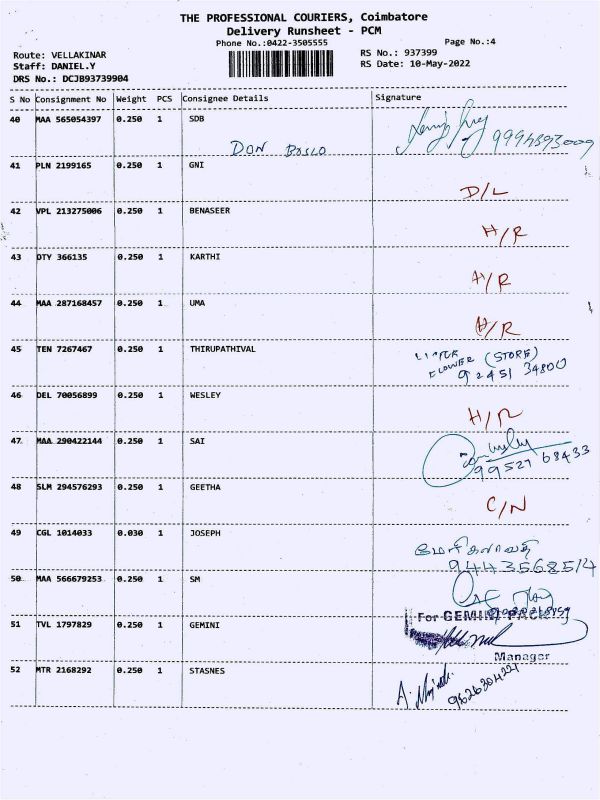 THE PROFESSIONAL COURIERS, Coimbatore
Delivery Runsheet - PCM
Phone No.:0422-3505555 Page No.:4
Route: VELLAKINAR RS No.: 937399
Staff: DANIEL.Y RS Date: 10-May-2022
DRS No.: DCJB93739904
S No Consignment No Weight PCS Consignee Details Signature
40 MAA 565054397 0.250 1 SDB
DON BOSCO 9994393009
41 PLN 2199165 0.250 1 GNI
D/L
42 VPL 213275006 0.250 1 BENASEER
H/R
43 OTY 366135 0.250 1 KARTHI
H/R
44 MAA 287168457 0.250 1 UMA
H/R
45 TEN 7267467 0.250 1 THIRUPATHIVAL
FLOWER (STORE)
92451 34800
46 DEL 70056899 0.250 1 WESLEY
H/R
47 MAA 290422144 0.250 1 SAI
99527 68433
48 SLM 294576293 0.250 1 GEETHA
C/N
49 CGL 1014033 0.030 1 JOSEPH
9443568514
50 MAA 566679253 0.250 1 SM
51 TVL 1797829 0.250 1 GEMINI
For GEMINI PACK
Manager
52 MTR 2168292 0.250 1 STASNES